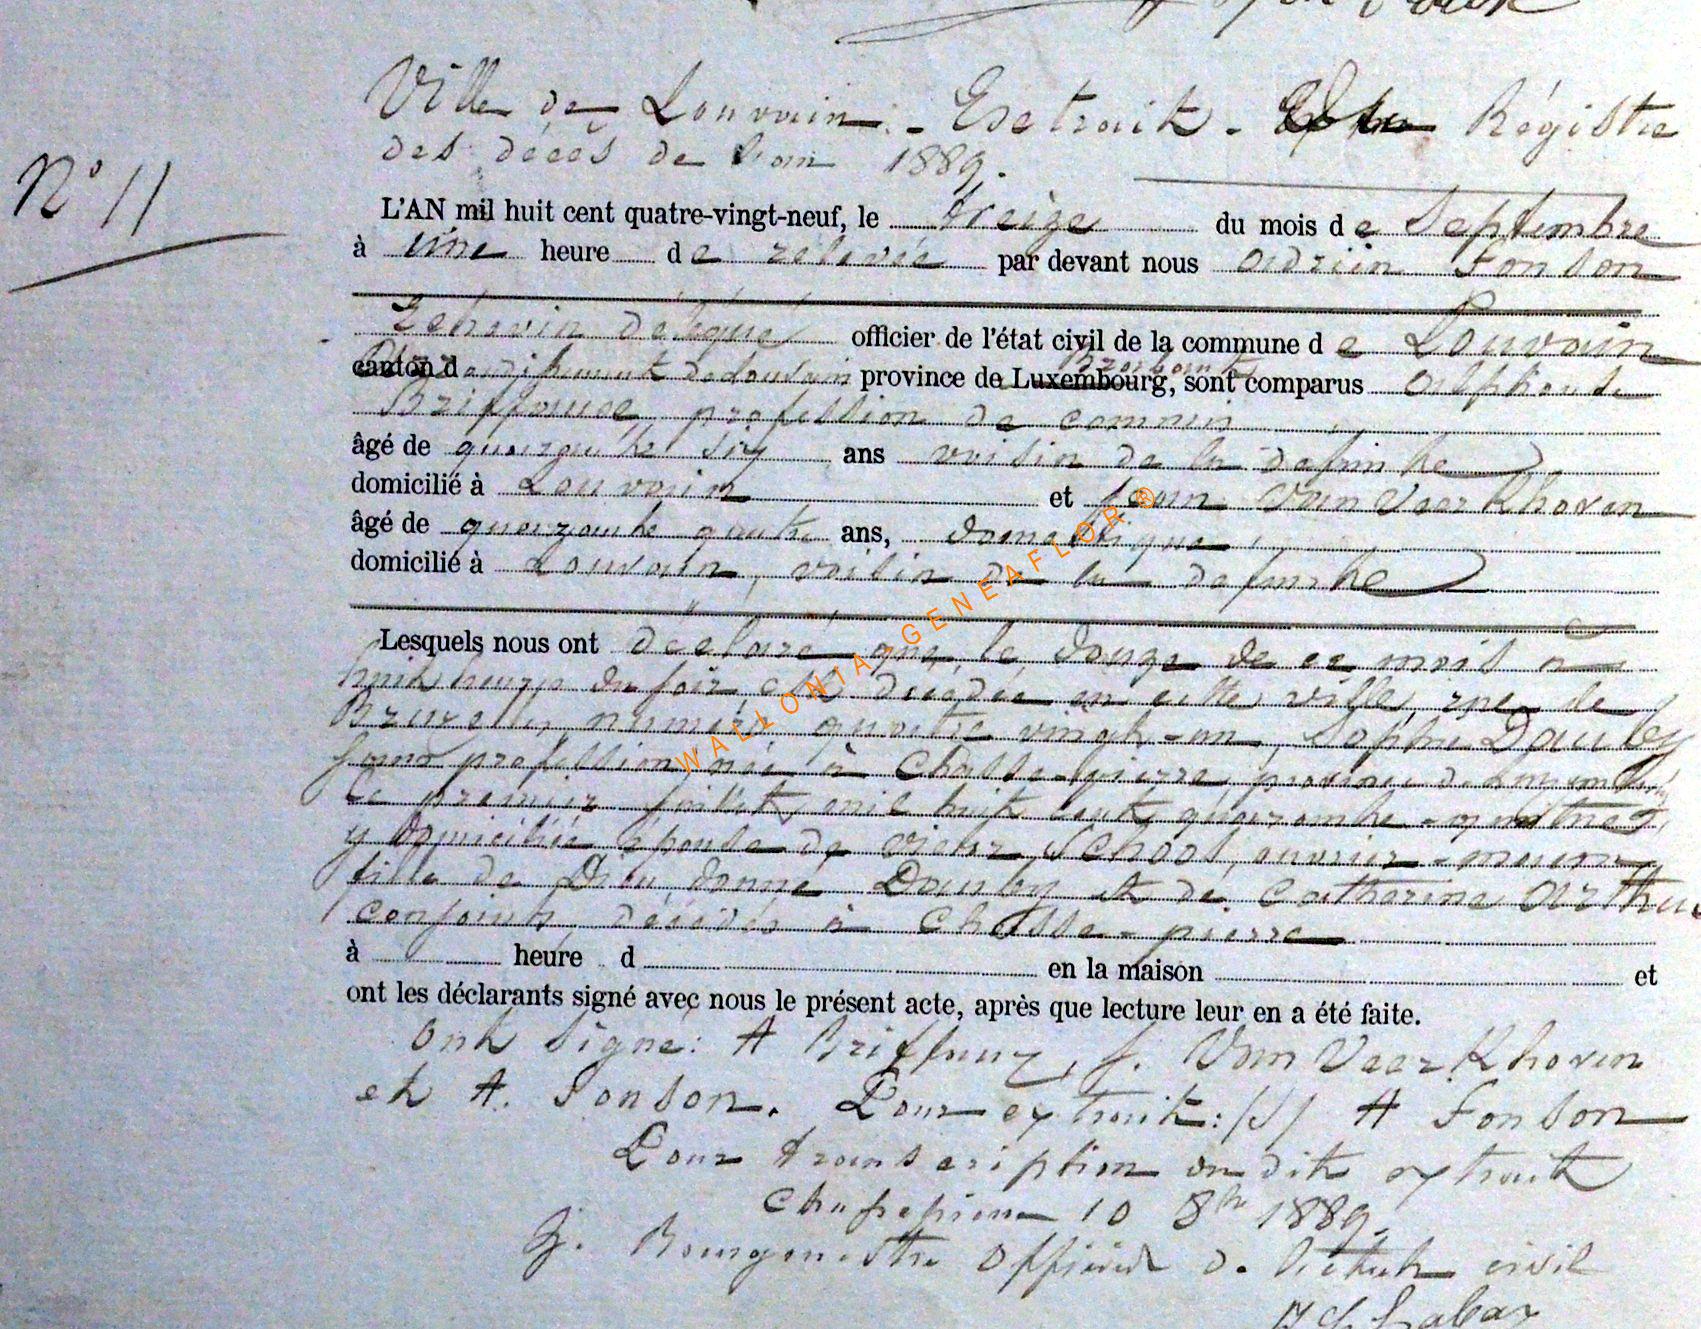 Ville de Louvain. - Esctrait - Régistre
des décès de l'an 1889.
N° 11
L'AN mil huit cent quatre-vingt-neuf, le treize du mois de Septembre
à une heure de relevée par devant nous Adrien Fonson
Echevin délégué officier de l'état civil de la commune de Louvain
canton d arrondissement de Louvain province de Luxembourg, sont comparus Alphonse
Brabant
profession de commis
âgé de quarante six ans voisin de la défunte
domicilié à Louvain et Jean Van VaerKhoven
âgé de quarante quatre ans, domestique,
domicilié à Louvain, voisin de la défunte
Lesquels nous ont déclaré que le douze de ce mois à
huit heures du soir est décédée en cette ville rue de
Bruxelles, numéro quatre vingt-un, Sophie Dauby
sans profession née à Chasse-pierre province de Luxembourg
le premier juillet mil huit cent quarante-quatre,
y domiciliée épouse de Victor Schoos, ouvrier-
fille de Dieudonné Dauby et de Catherine Arthus
conjoints décédés à Chasse-pierre
à heure d en la maison et
ont les déclarants signé avec nous le présent acte, après que lecture leur en a été faite.
Ont signé: A Briffauz, J. Van VaerKhoven
et A. Fonson. Pour extrait: (S) A Fonson
Pour transcription du dit extrait
Chassepierre 10 8bre 1889.
Bourgmestre Officier de l'état civil
WALLONIA - GENEAFLOR®